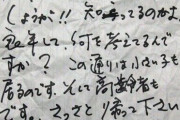 しょうが!! 知ってるのかな、
して、何を考えてるんで
すか? この通りは小さい子も
居るのです。そして高齢者も
です。さっさと帰って下さい